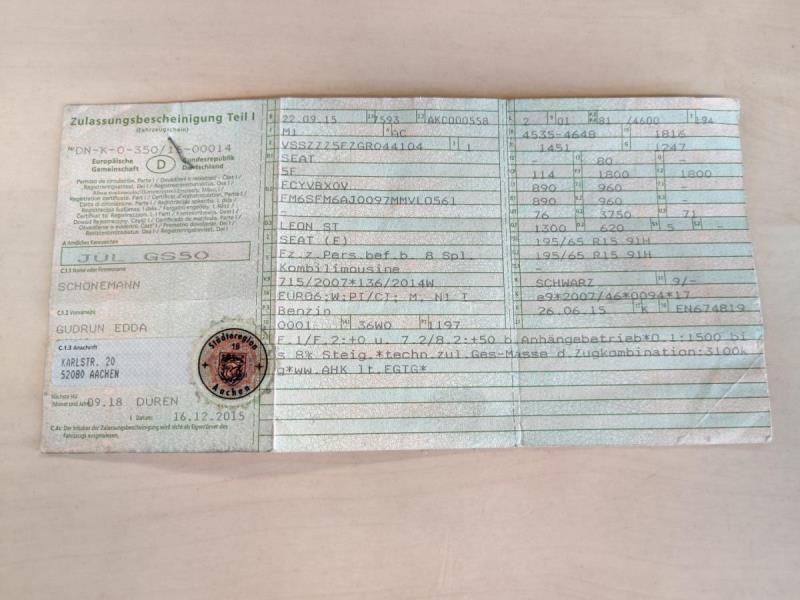 Zulassungsbescheinigung Teil I
(Fahrzeugschein)
Nr. DN-K-0-350/15-00014
Europäische Gemeinschaft
D
Bundesrepublik Deutschland
A Amtliches Kennzeichen
JÜL GS50
C.1.1 Name oder Firmenname
SCHÖNEMANN
C.1.2 Vorname(n)
GUDRUN EDDA
C.1.3 Anschrift
KARLSTR. 20
52080 AACHEN
Städteregion
Aachen
Nächste HU
(Monat und Jahr) 09.18 DÜREN
I Datum: 16.12.2015
C.4c Der Inhaber der Zulassungsbescheinigung wird nicht als Eigentümer des
Fahrzeugs ausgewiesen.
22.09.15 7593 AKC000558
M1 AC
VSSZZZ5FZGR044104 1
SEAT
5F
ECYVBX0V
FM6SFM6AJ0097MMVL0561
-
LEON ST
SEAT (E)
Fz.z.Pers.bef.b. 8 Spl.
Kombilimousine
715/2007*136/2014W
EURO6;W;PI/CI; M, N1 I
Benzin
0001 36W0 1197
2 01 81 /4600 194
4535-4648 1816
1451 1247
- 80 -
114 1800 1800
890 960 -
890 960 -
76 3750 71
1300 620 5 -
195/65 R15 91H
195/65 R15 91H
-
SCHWARZ 9/-
e9*2007/46*0094*17
26.06.15 K EN674819
F.1/F.2:+0 u. 7.2/8.2:+50 b.Anhängebetrieb*O.1:1500 bi
s 8% Steig.*techn.zul.Ges-Masse d.Zugkombination:3100k
g*ww.AHK lt.EGTG*